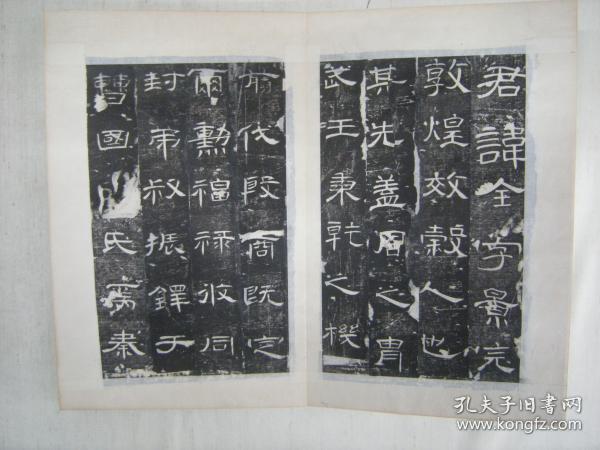 君諱全字景完
敦煌效穀人也
其先蓋周之胄
武王秉乾之機
翦伐殷商既定
爾勳福祿攸同
封弟叔振鐸于
曹國因氏焉秦
孔夫子旧书网
www.kongfz.com